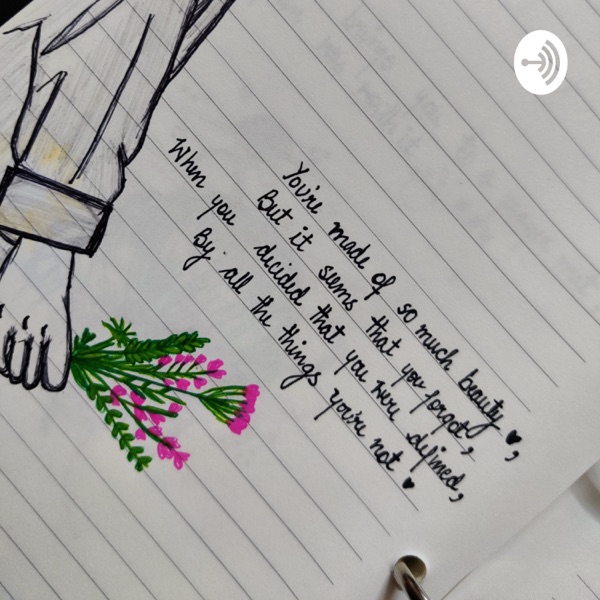 You're made of so much beauty ♥,
But it seems that you forgot,
When you decided that you were defined,
By all the things you're not ♥